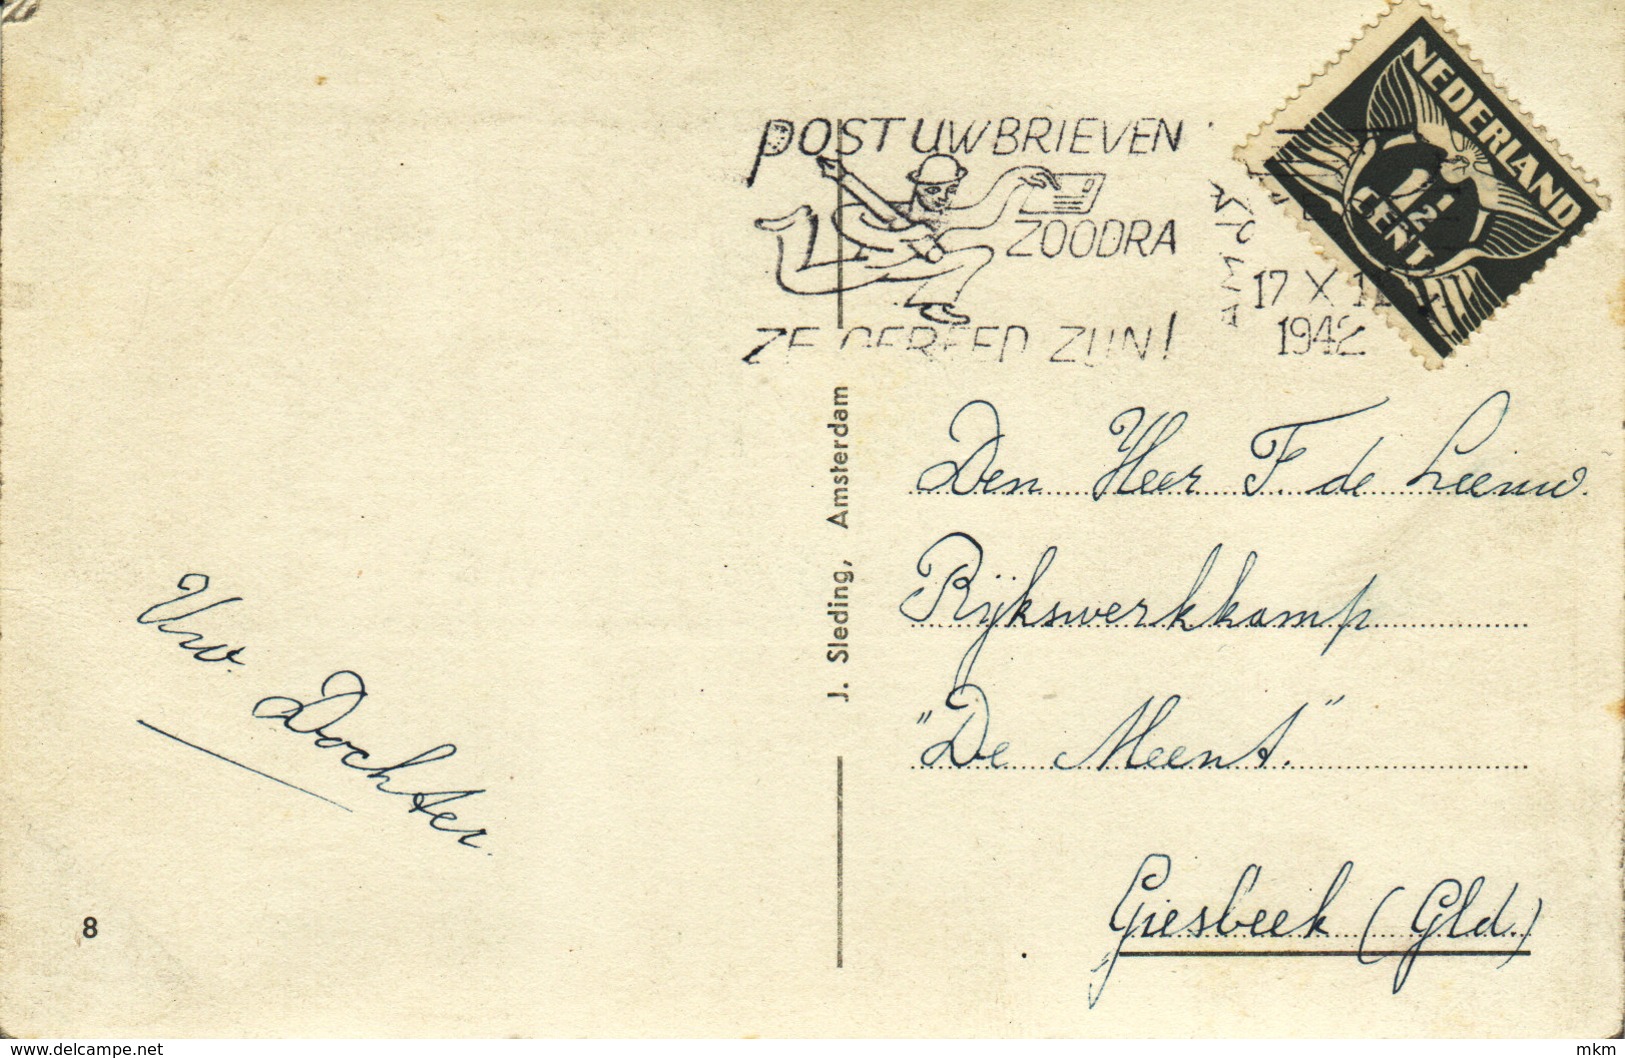 POST UW BRIEVEN
ZOODRA
ZE GEREED ZIJN!
NEDERLAND
1½
CENT
17 X 1
1942
J. Sleding, Amsterdam
Den Heer F. de Leeuw.
Rijkswerkkamp
"De Meent."
Giesbeek (Gld.)
Uw. Dochter.
8
www.delcampe.net
mkm